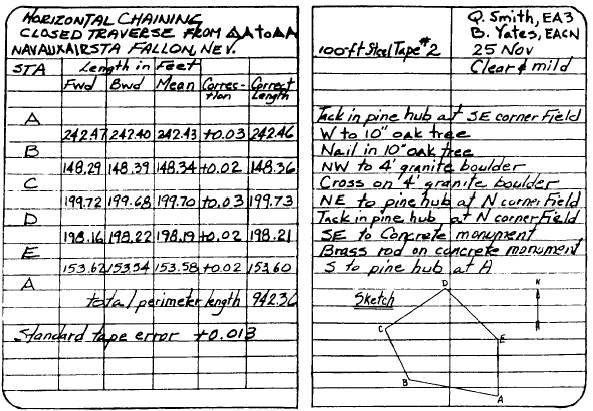 HORIZONTAL CHAINING
CLOSED TRAVERSE FROM △A to △A
NAVAUXAIRSTA FALLON, NEV.
STA Length in Feet
Fwd Bwd Mean Correc- Correct
tion Length
A
242.47 242.40 242.43 +0.03 242.46
B
148.29 148.39 148.34 +0.02 148.36
C
199.72 199.68 199.70 +0.03 199.73
D
198.16 198.22 198.19 +0.02 198.21
E
153.62 153.54 153.58 +0.02 153.60
A
total perimeter length 942.36
Standard tape error +0.013
Q. Smith, EA3
B. Yates, EACN
100ft Steel Tape #2 25 Nov
Clear & mild
Tack in pine hub at SE corner Field
W to 10" oak tree
Nail in 10" oak tree
NW to 4' granite boulder
Cross on 4' granite boulder
NE to pine hub at N corner Field
Tack in pine hub at N corner Field
SE to Concrete monument
Brass rod on concrete monument
S to pine hub at A
Sketch
D
N
C
E
B
A